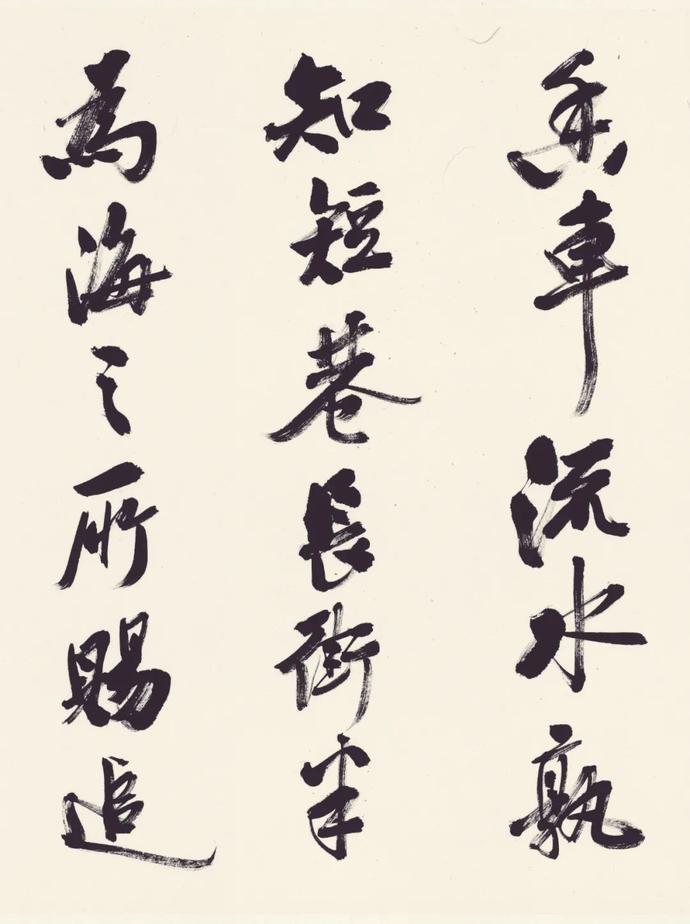 香車流水孰
知短巷長街半
為海之所賜追